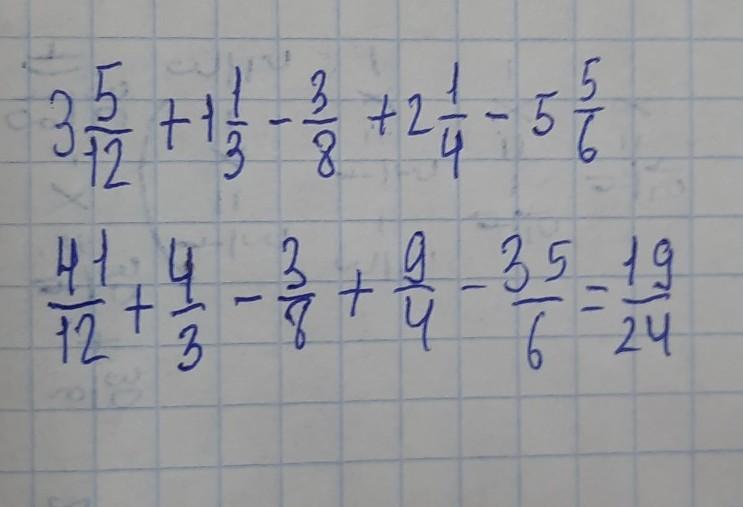 3 5/12 + 1 1/3 - 3/8 + 2 1/4 - 5 5/6
41/12 + 4/3 - 3/8 + 9/4 - 35/6 = 19/24